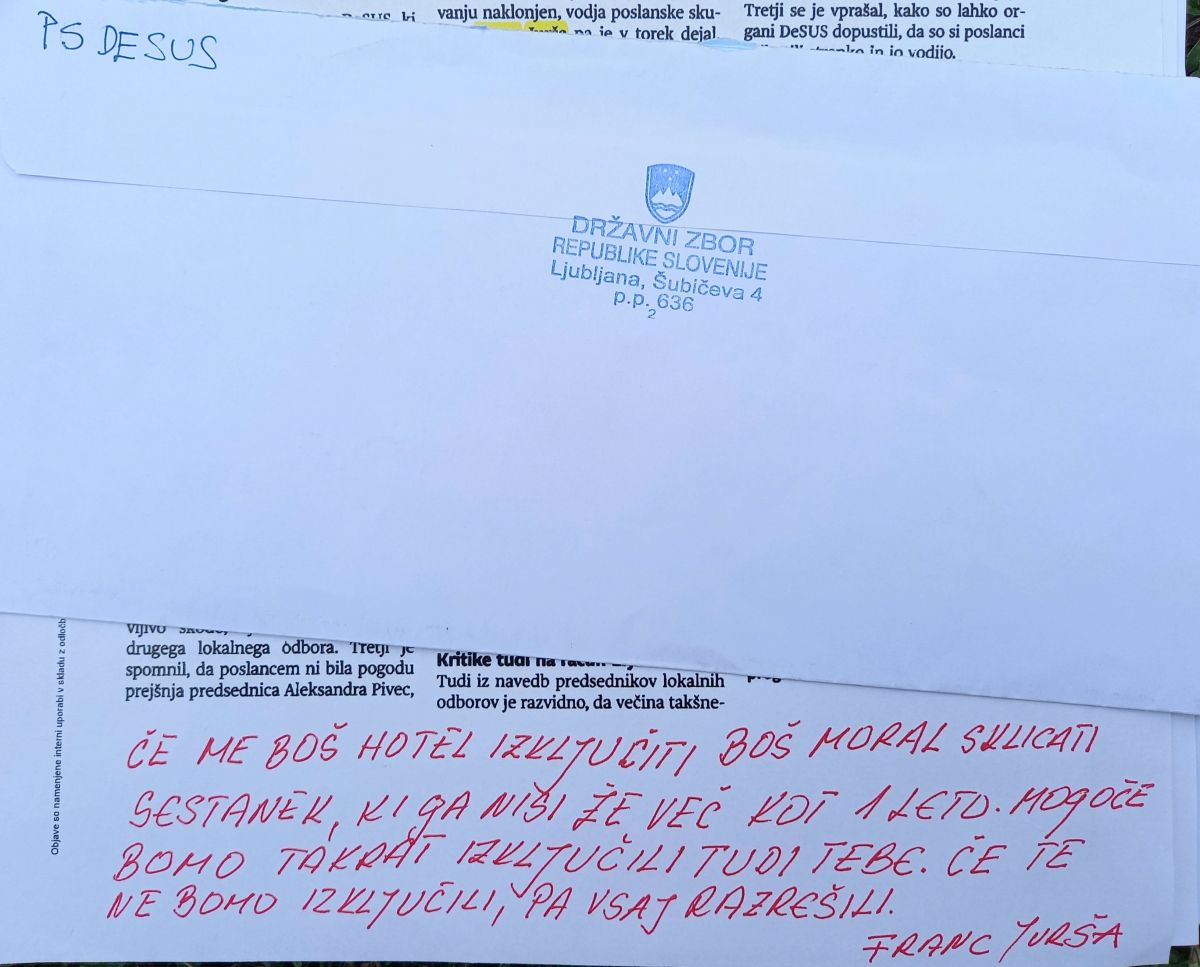 PS DESUS
vanju naklonjen, vodja poslanske sku-
pa je v torek dejal,
Tretji se je vprašal, kako so lahko or-
gani DeSUS dopustili, da so si poslanci
in jo vodijo.
DRŽAVNI ZBOR
REPUBLIKE SLOVENIJE
Ljubljana, Šubičeva 4
p.p. 636
2
Objave so namenjene interni uporabi v skladu z odločb
drugega lokalnega odbora. Tretji je
spomnil, da poslancem ni bila pogodu
prejšnja predsednica Aleksandra Pivec,
Kritike tudi na račun
Tudi iz navedb predsednikov lokalnih
odborov je razvidno, da večina takšne-
ČE ME BOŠ HOTEL IZKLJUČITI BOŠ MORAL SKLICATI
SESTANEK, KI GA NISI ŽE VEČ KOT 1 LETO. MOGOČE
BOMO TAKRAT IZKLJUČILI TUDI TEBE. ČE TE
NE BOMO IZKLJUČILI, PA VSAJ RAZREŠILI.
FRANC JURŠA